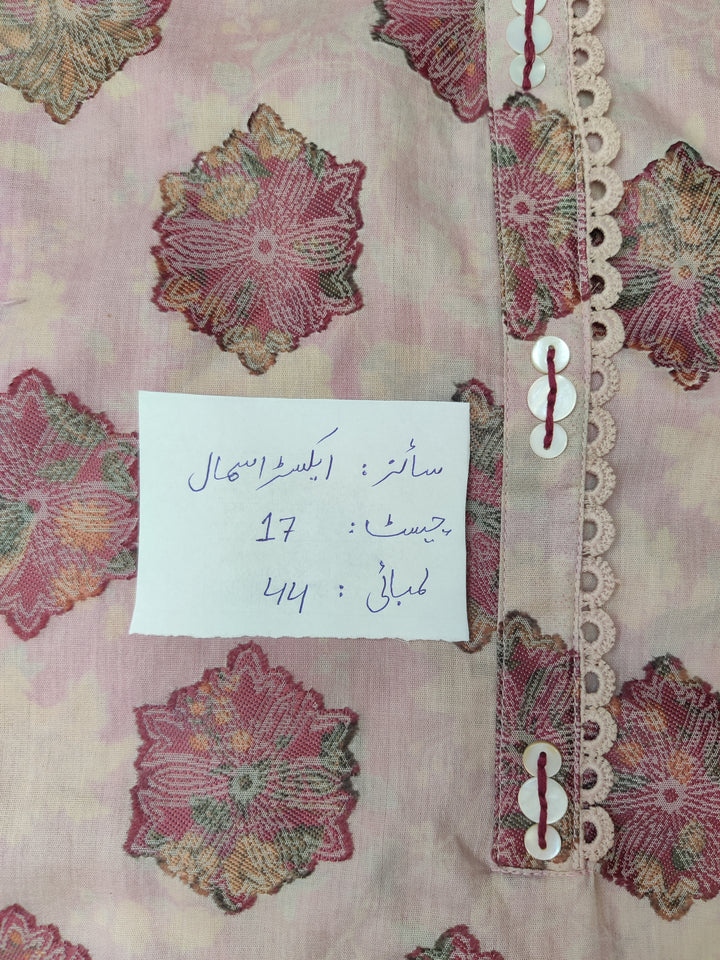 سائز : ایکسٹرا سمال
چیسٹ : 17
لمبائی : 44